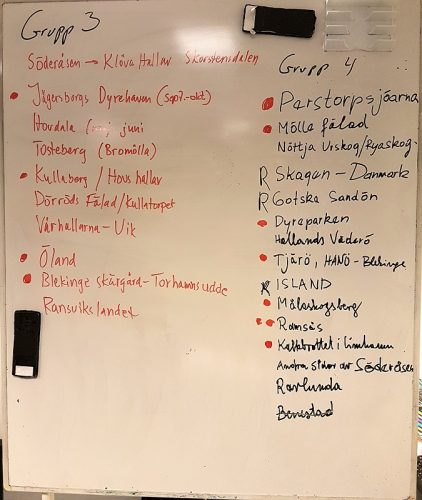 Grupp 3
Söderåsen → Klöva Hallar Skorstensdalen
Jägersborgs Dyrehaven (sept.-okt)
Hovdala (maj juni
Tosteberg (Bromölla)
Kullaberg / Hovs hallar
Dörröds Fälad/Kullatorpet
Vårhallarna - Vik
Öland
Blekinge skärgård - Torhamns udde
Ransvikslandet
Grupp 4
Parstorpsjöarna
Mölle fälad
Nöttja Urskog/Ryaskog.
R Skagen - Danmark
R Gotska Sandön
Dyreparken
Hallands Väderö
Tjärö, HANÖ - Blekinge
R ISLAND
Målaskogsberg
Ramsås
Kalkbrottet i limhamn
Andra sidor av Söderåsen
Ravlunda
Benestad